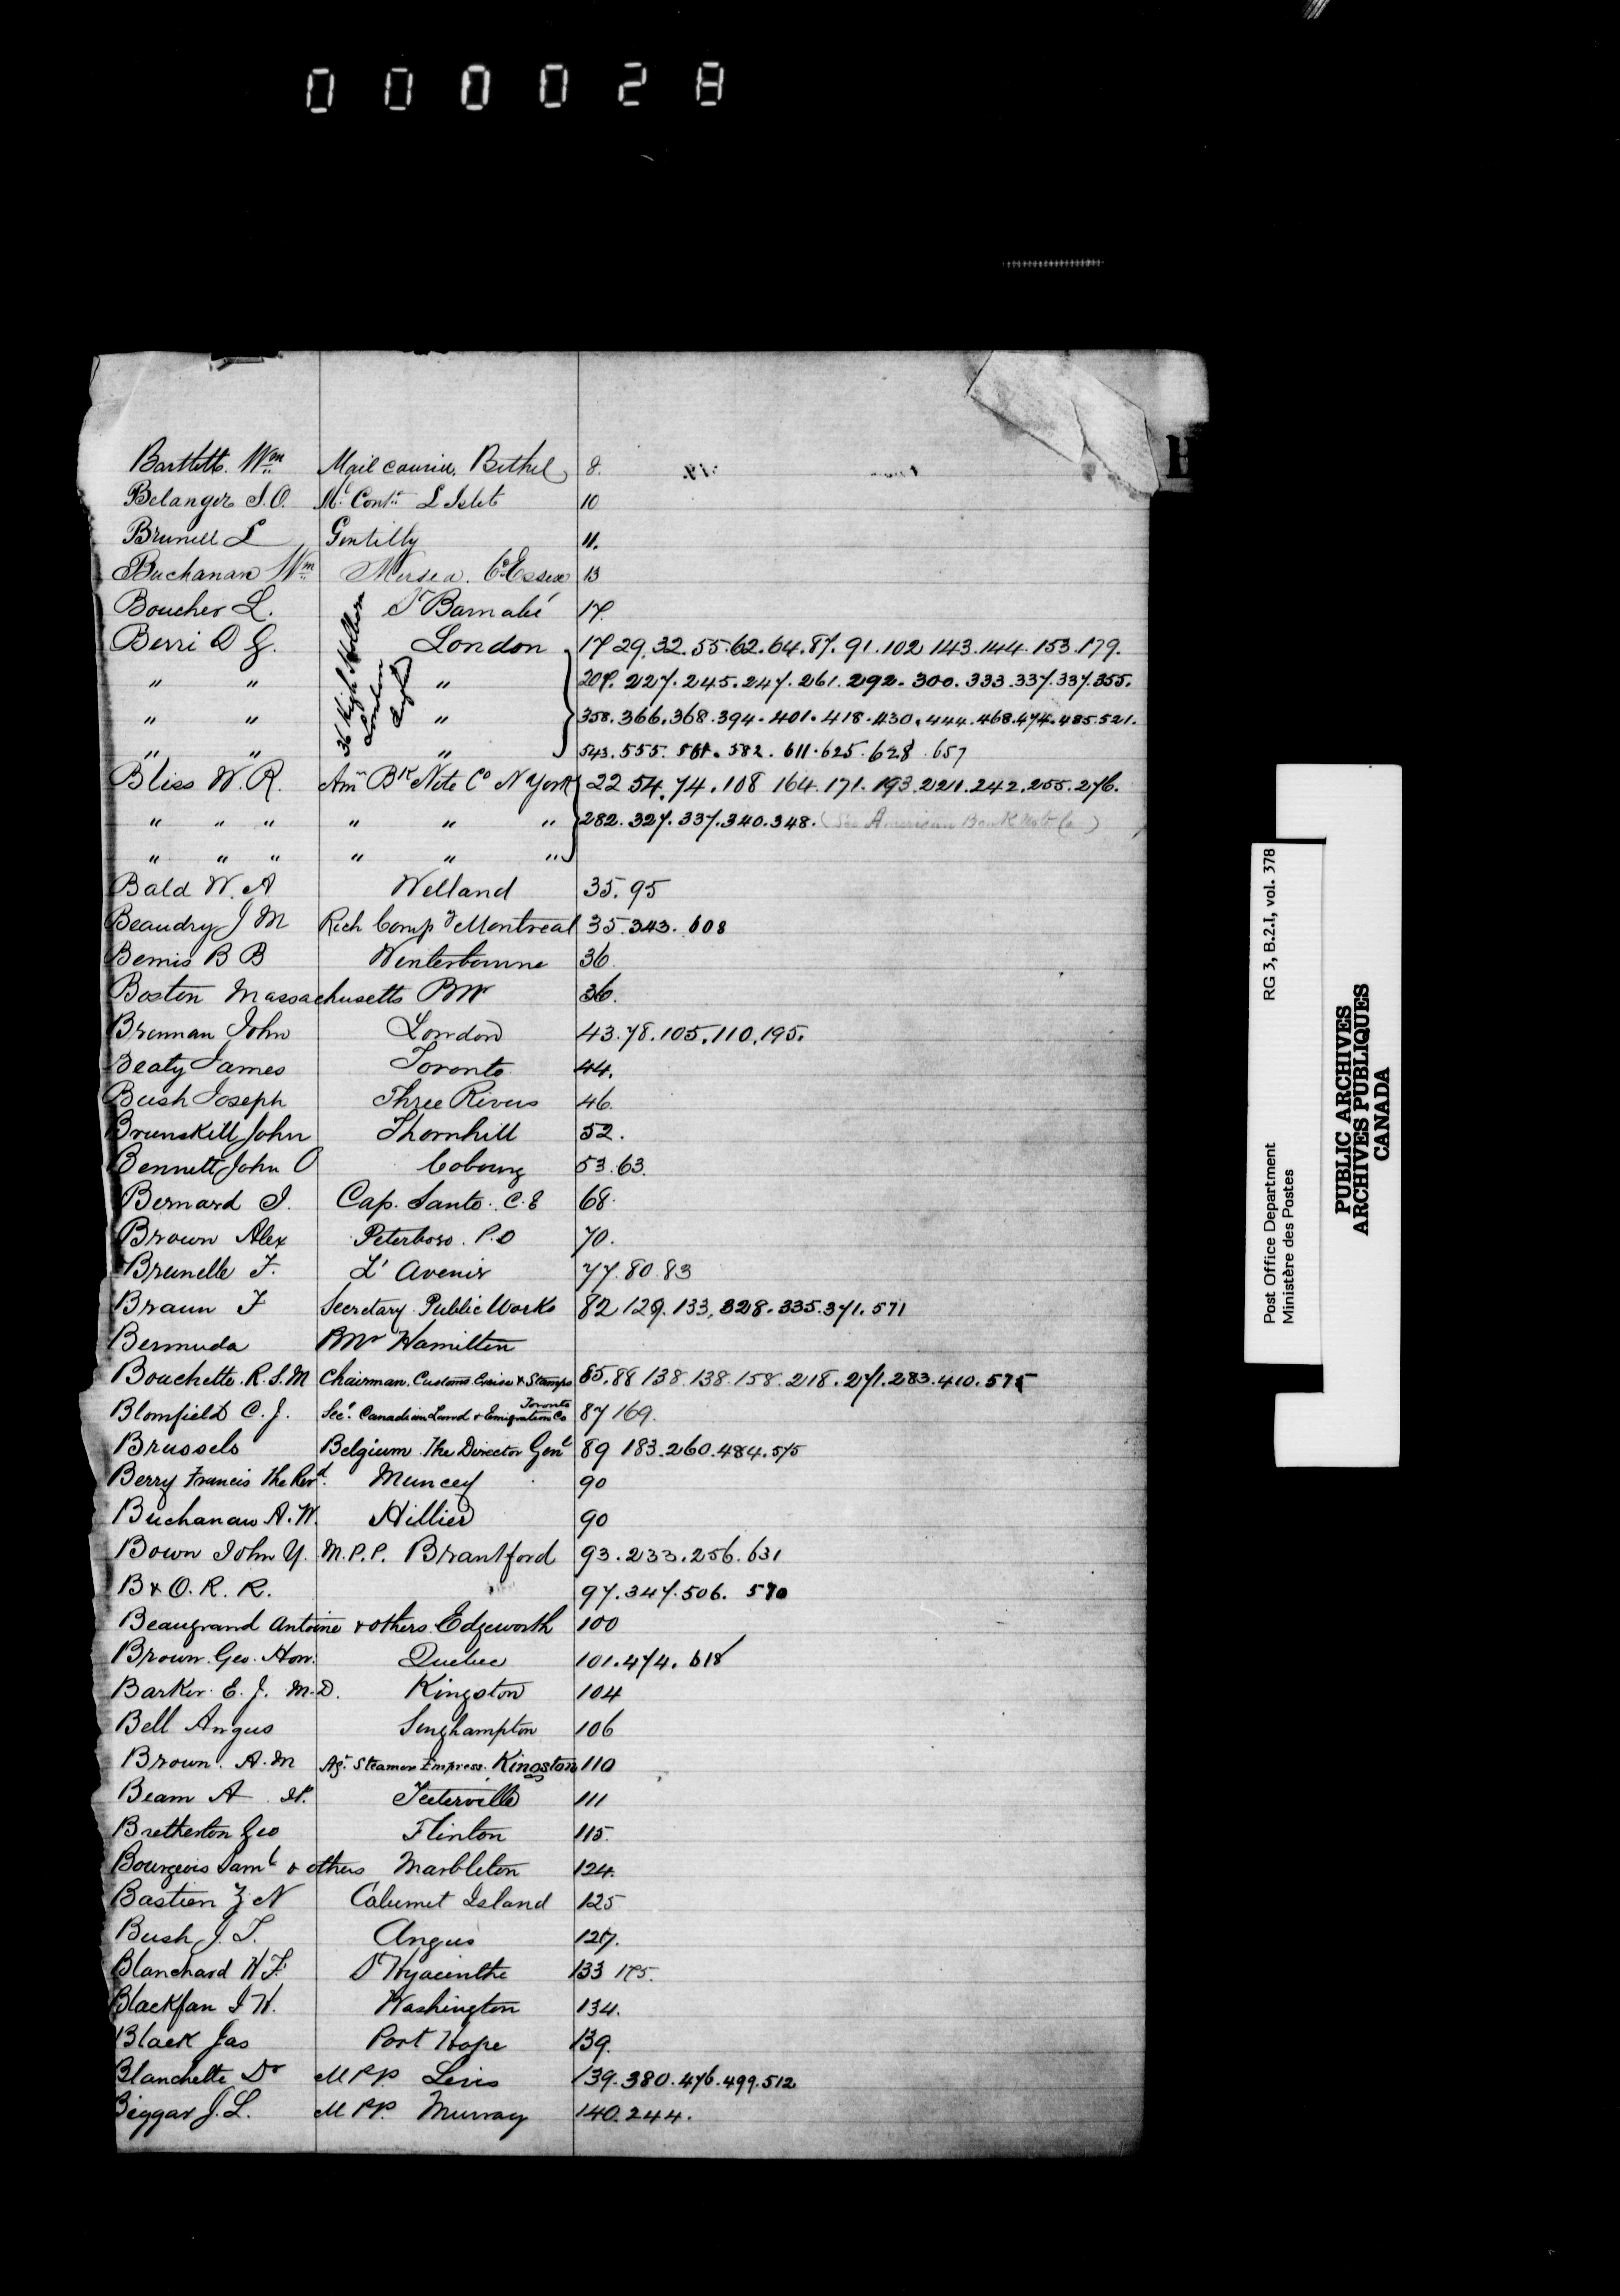 000028
Bartlett. Wm Mail courier, Bethel 8.
Belanger J.O. Ml Contr L Islet 10
Brunell L Gentilly 11.
Buchanan Wm Mersea. Co Essex 13
Boucher L. St Barnabé 17.
Berri D G. 36 High Holborn London England London 17 29. 32. 55. 62. 64. 87. 91. 102 143. 144. 153. 179.
" " " 207. 227. 245. 247. 261. 292. 300. 333. 337. 337. 355.
" " " 358. 366. 368. 394. 401. 418. 430. 444. 468. 474. 485. 521.
" " " 543. 555. 561. 582. 611. 625. 628. 657
Bliss W. R. Amn Bk Note Co N York 22 54. 74. 108 164. 171. 193. 221. 242. 255. 276.
" " " " " " 282. 327. 337. 340. 348. (See American Bank Note Co)
" " " " " "
Bald W. A Welland 35. 95
Beaudry J M Rich Compy Montreal 35. 343. 608
Bemis B B Winterbourne 36.
Boston Massachusetts PMr 36.
Brennan John London 43. 78. 105. 110. 195.
Beaty James Toronto 44.
Bush Joseph Three Rivers 46.
Brunskill John Thornhill 52.
Bennett John O Cobourg 53. 63.
Bernard J. Cap. Santo. C. E 68.
Brown Alex Peterboro. P.O 70.
Brunelle F. L'Avenir 77. 80. 83
Braun F Secretary Public Works 82 129. 133. 328. 335. 371. 571
Bermuda PMr Hamilton
Bouchette. R. S. M Chairman. Customs Excise & Stamps 85. 88 138. 138. 158. 218. 271. 283. 410. 575
Blomfield C. J. Secy. Canadian Land & Emigration Co Toronto 87 169.
Brussels Belgium The Director Genl 89 183. 260. 484. 575
Berry Francis The Revd. Muncey 90
Buchanan A. W. Hillier 90
Bown John Y. M. P. P. Brantford 93. 233. 256. 631
B & O. R. R. 97. 347. 506. 570
Beaugrand Antoine & others. Edgeworth 100
Brown. Geo. Hon. Quebec 101. 474. 618
Barker E. J. M. D. Kingston 104
Bell Angus Singhampton 106
Brown. A. M Agt. Steamer Empress. Kingston 110
Beam A Teeterville 111
Bretherton Geo Flinton 115.
Bourgeois Saml & others Marbleton 124.
Bastien Z. N Calumet Island 125
Bush J. T. Angus 127.
Blanchard H F. St Hyacinthe 133 175.
Blackfan J H. Washington 134.
Black Jas Port Hope 139.
Blanchette Dr M P P. Levis 139. 380. 476. 499. 512
Biggar J. L. M P P. Murray 140. 244.
Post Office Department RG 3, B.2.I, vol. 378
Ministère des Postes
PUBLIC ARCHIVES
ARCHIVES PUBLIQUES
CANADA